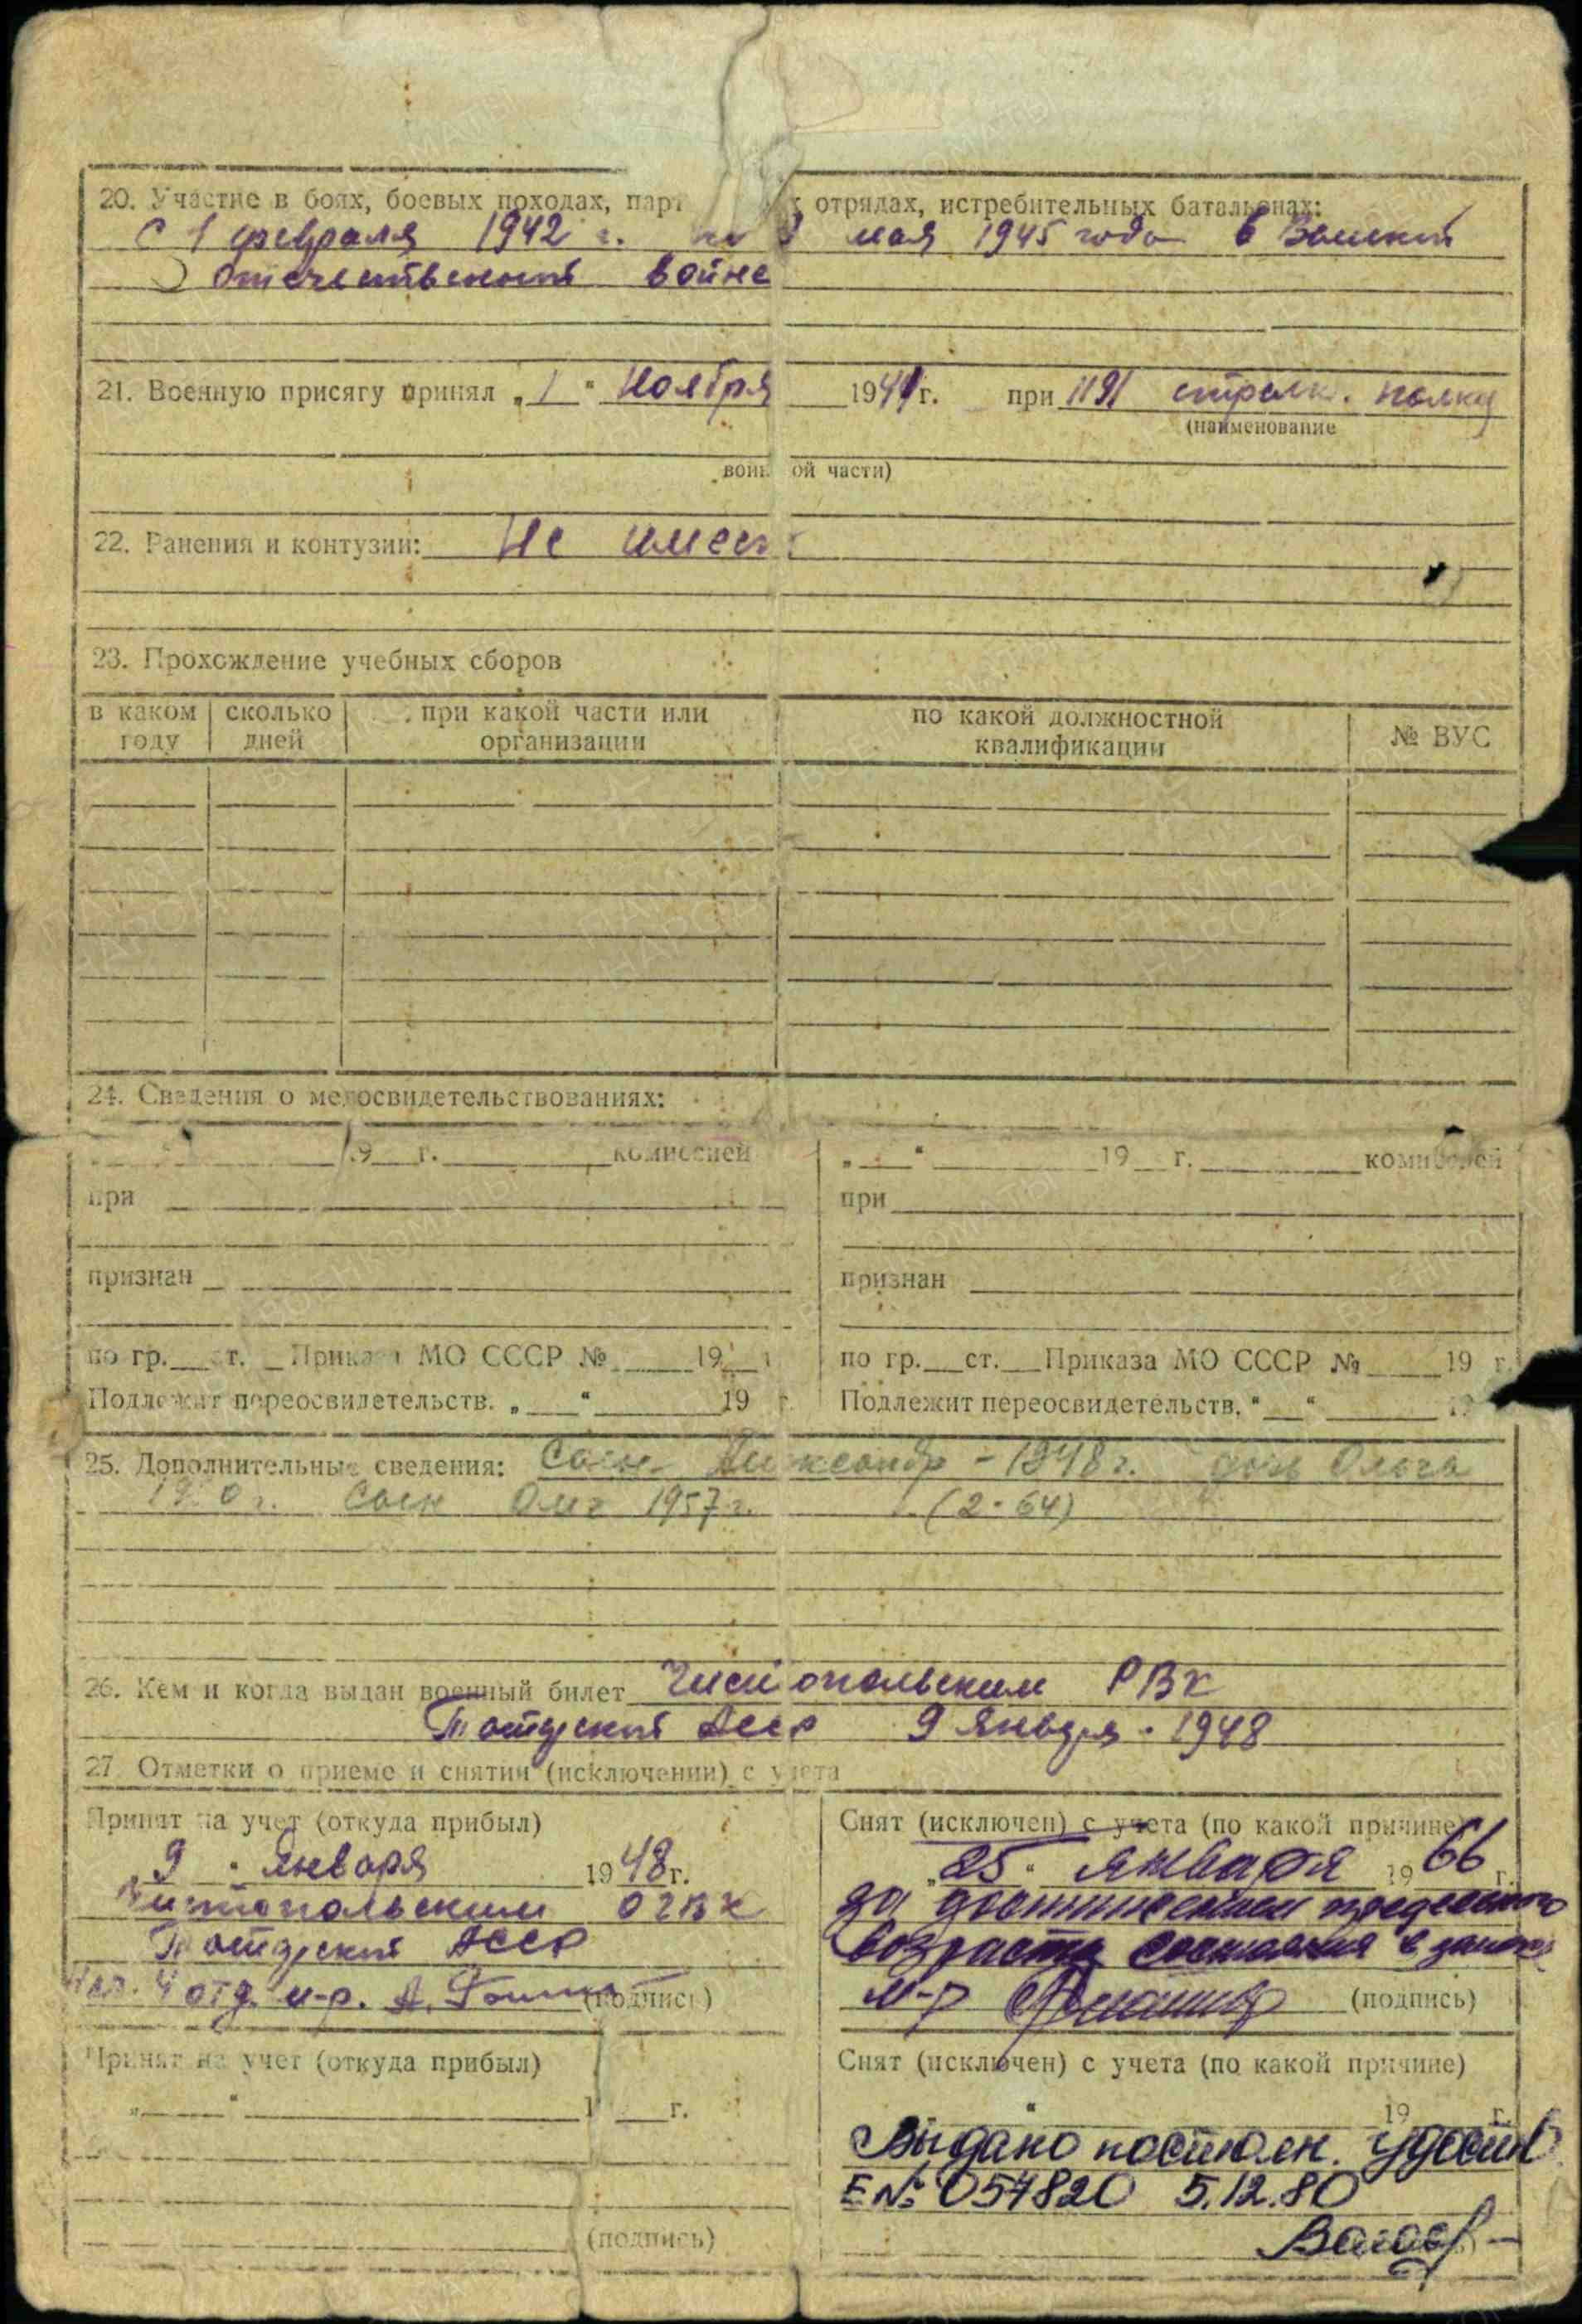 20. Участие в боях, боевых походах, парт х отрядах, истребительных батальонах:
с 1 февраля 1942 г. по 9 мая 1945 года в Великой
Отечественной войне
21. Военную присягу принял „1“ Ноября 1941 г. при 1191 стрелк. полку
(наименование
воин ой части)
22. Ранения и контузии: Не имеет
23. Прохождение учебных сборов
в каком году сколько дней при какой части или организации по какой должностной квалификации № ВУС
24. Сведения о медосвидетельствованиях:
19 г. комиссией
при
признан
по гр. ст. Приказа МО СССР № 19
Подлежит переосвидетельств. „ “ 19 г.
„ “ 19 г. комиссией
при
признан
по гр. ст. Приказа МО СССР № 19 г.
Подлежит переосвидетельств. “ “ 19
25. Дополнительные сведения: Сын Александр - 1948 г. дочь Ольга
г. Сын Олег 1957 г. (2-64)
26. Кем и когда выдан военный билет Чистопольским РВК
Татарской АССР 9 Января 1948
27. Отметки о приеме и снятии (исключении) с учета
Принят на учет (откуда прибыл)
„9“ Января 1948 г.
Чистопольским ОГВК
Татарской АССР
Нач. 4 отд. м-р. А. (подпись)
Принят на учет (откуда прибыл)
„ “ 1 г.
(подпись)
Снят (исключен) с учета (по какой причине)
„25“ Января 1966 г.
за достижением предельного
возраста состояния в запасе
м-р (подпись)
Снят (исключен) с учета (по какой причине)
“ 19 г.
Выдано постоян. удостов.
Е № 054820 5.12.80